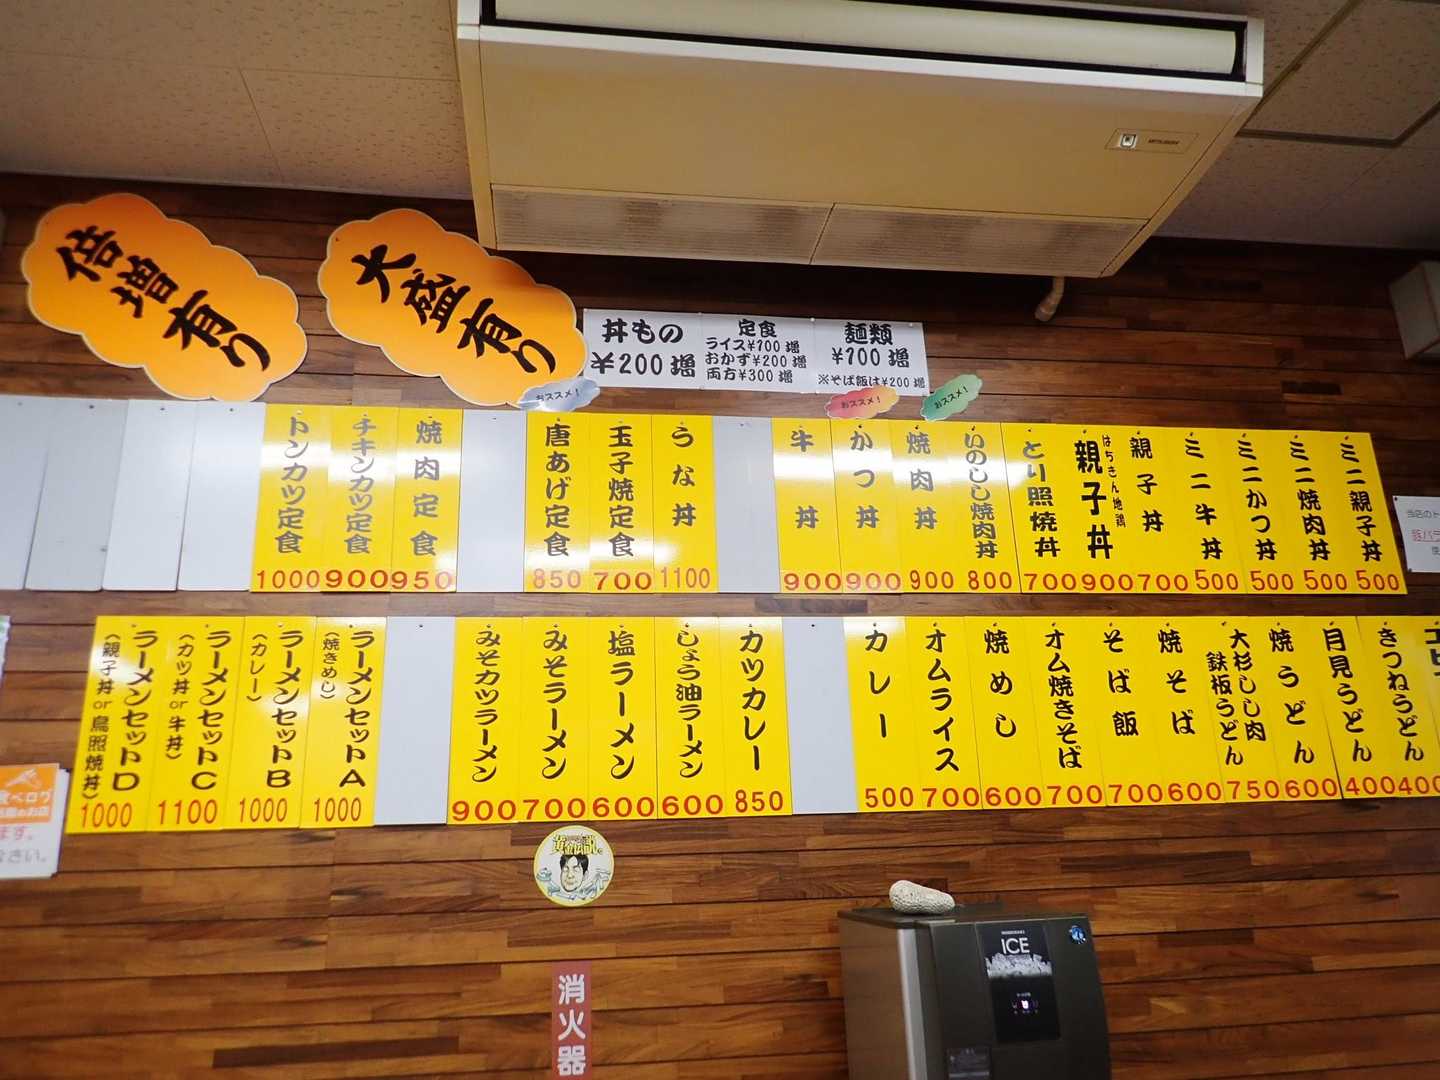 倍増有り
大盛有り
丼もの
¥200増
定食
ライス¥100増
おかず¥200増
両方¥300増
麺類
¥100増
※そば飯は¥200増
おススメ!
おススメ!
おススメ!
ミニ親子丼
500
ミニ焼肉丼
500
ミニかつ丼
500
ミニ牛丼
500
親子丼
700
はちきん地鶏
親子丼
900
とり照焼丼
700
いのしし焼肉丼
800
焼肉丼
900
かつ丼
900
牛丼
900
うな丼
1100
玉子焼定食
700
唐あげ定食
850
焼肉定食
950
チキンカツ定食
900
トンカツ定食
1000
きつねうどん
400
月見うどん
400
焼うどん
600
大杉しし肉
鉄板うどん
750
焼そば
600
そば飯
700
オム焼きそば
700
焼めし
600
オムライス
700
カレー
500
カツカレー
850
しょう油ラーメン
600
塩ラーメン
600
みそラーメン
700
みそカツラーメン
900
ラーメンセットA
(焼きめし)
1000
ラーメンセットB
(カレー)
1000
ラーメンセットC
(カツ丼or牛丼)
1100
ラーメンセットD
(親子丼or鳥照焼丼)
1000
当店のト
豚バラ
食べログ
ます。
なさい。
黄金伝説
ICE
消火器